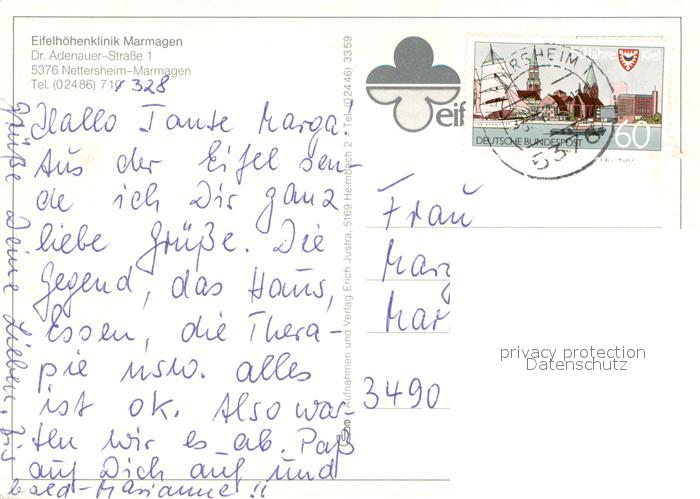 Eifelhöhenklinik Marmagen
Dr. Adenauer-Straße 1
5376 Nettersheim-Marmagen
Tel. (02486) 71 328
Hallo Tante Marga!
Aus der Eifel sen-
de ich Dir ganz
liebe Grüße. Die
Gegend, das Haus,
Essen, die Thera-
pie usw. alles
ist ok. Also war-
ten wir es ab. Paß
auf Dich auf und
Grüße Deine Lieben. Bis
bald - Marianne!!
Aufnahmen und Verlag Erich Justra, 5169 Heimbach 2 - Tel. (02446) 3359
eif
Jahre Kiel
DEUTSCHE BUNDESPOST
60
ERSHEIM 1
5376
Frau
Marg
Mar
3490
privacy protection
Datenschutz